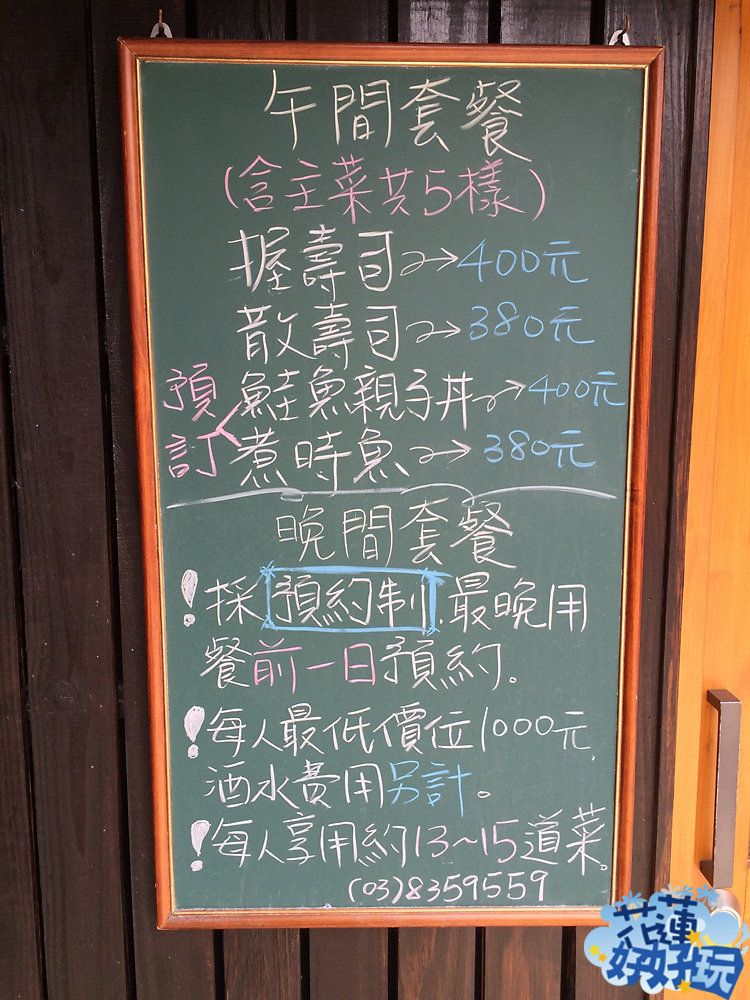 午間套餐
(含主菜共5樣)
握壽司→400元
散壽司→380元
預訂
鮭魚親子丼→400元
煮時魚→380元
晚間套餐
!採預約制.最晚用
餐前一日預約。
!每人最低價位1000元,
酒水費用另計。
!每人享用約13~15道菜。
(03)8359559
花蓮
好好玩